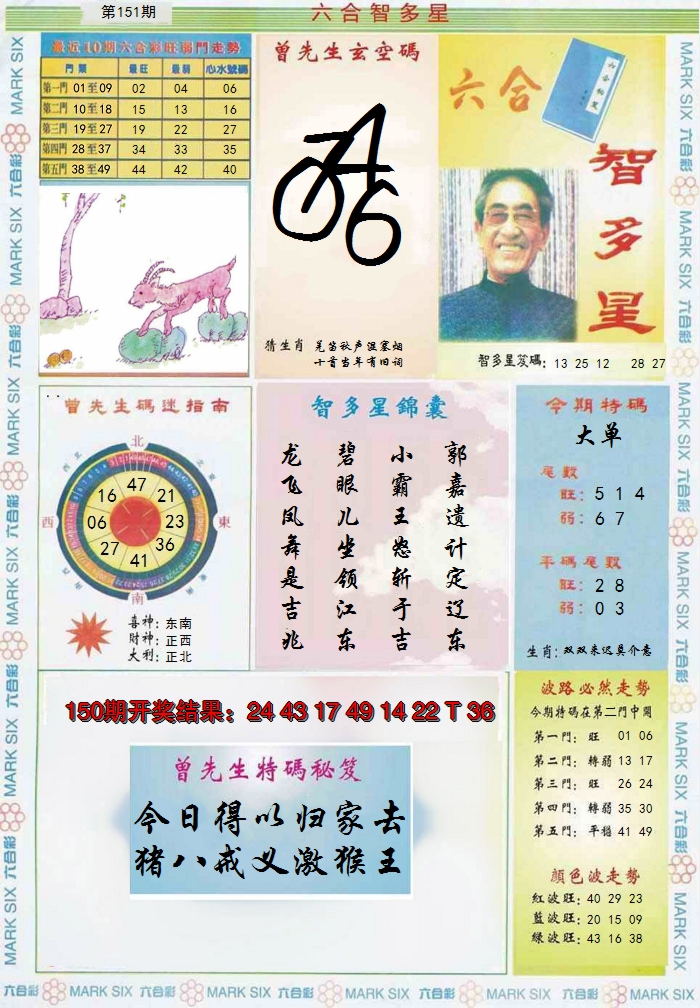 第151期
六合智多星
最近10期六合彩旺弱門走勢
門類 最旺 最弱 心水號碼
第一門 01至09 02 04 06
第二門 10至18 15 13 16
第三門 19至27 19 22 27
第四門 28至37 34 33 35
第五門 38至49 44 42 40
曾先生玄空碼
猜生肖 羌笛秋声湿塞烟
十首当年有旧词
六合
智多星
智多星笈碼: 13 25 12 28 27
曾先生碼迷指南
北
西
東
南
47
16 21
06 23
27 36
41
喜神: 东南
财神: 正西
大利: 正北
智多星錦囊
郭嘉遗计定辽东
小霸王怒斩于吉
碧眼儿坐领江东
龙飞凤舞是吉兆
今期特碼
大单
尾數
旺: 5 1 4
弱: 6 7
平碼尾數
旺: 2 8
弱: 0 3
生肖: 双双来迟莫介意
150期开奖结果: 24 43 17 49 14 22 T 36
曾先生特碼秘笈
今日得以归家去
猪八戒义激猴王
波路必然走勢
今期特碼在第二門中開
第一門: 旺 01 06
第二門: 轉弱 13 17
第三門: 旺 26 24
第四門: 轉弱 35 30
第五門: 平穩 41 49
顏色波走勢
紅波旺: 40 29 23
藍波旺: 20 15 09
綠波旺: 43 16 38
六合彩 MARK SIX 六合彩 MARK SIX 六合彩 MARK SIX 六合彩 MARK SIX 六合彩